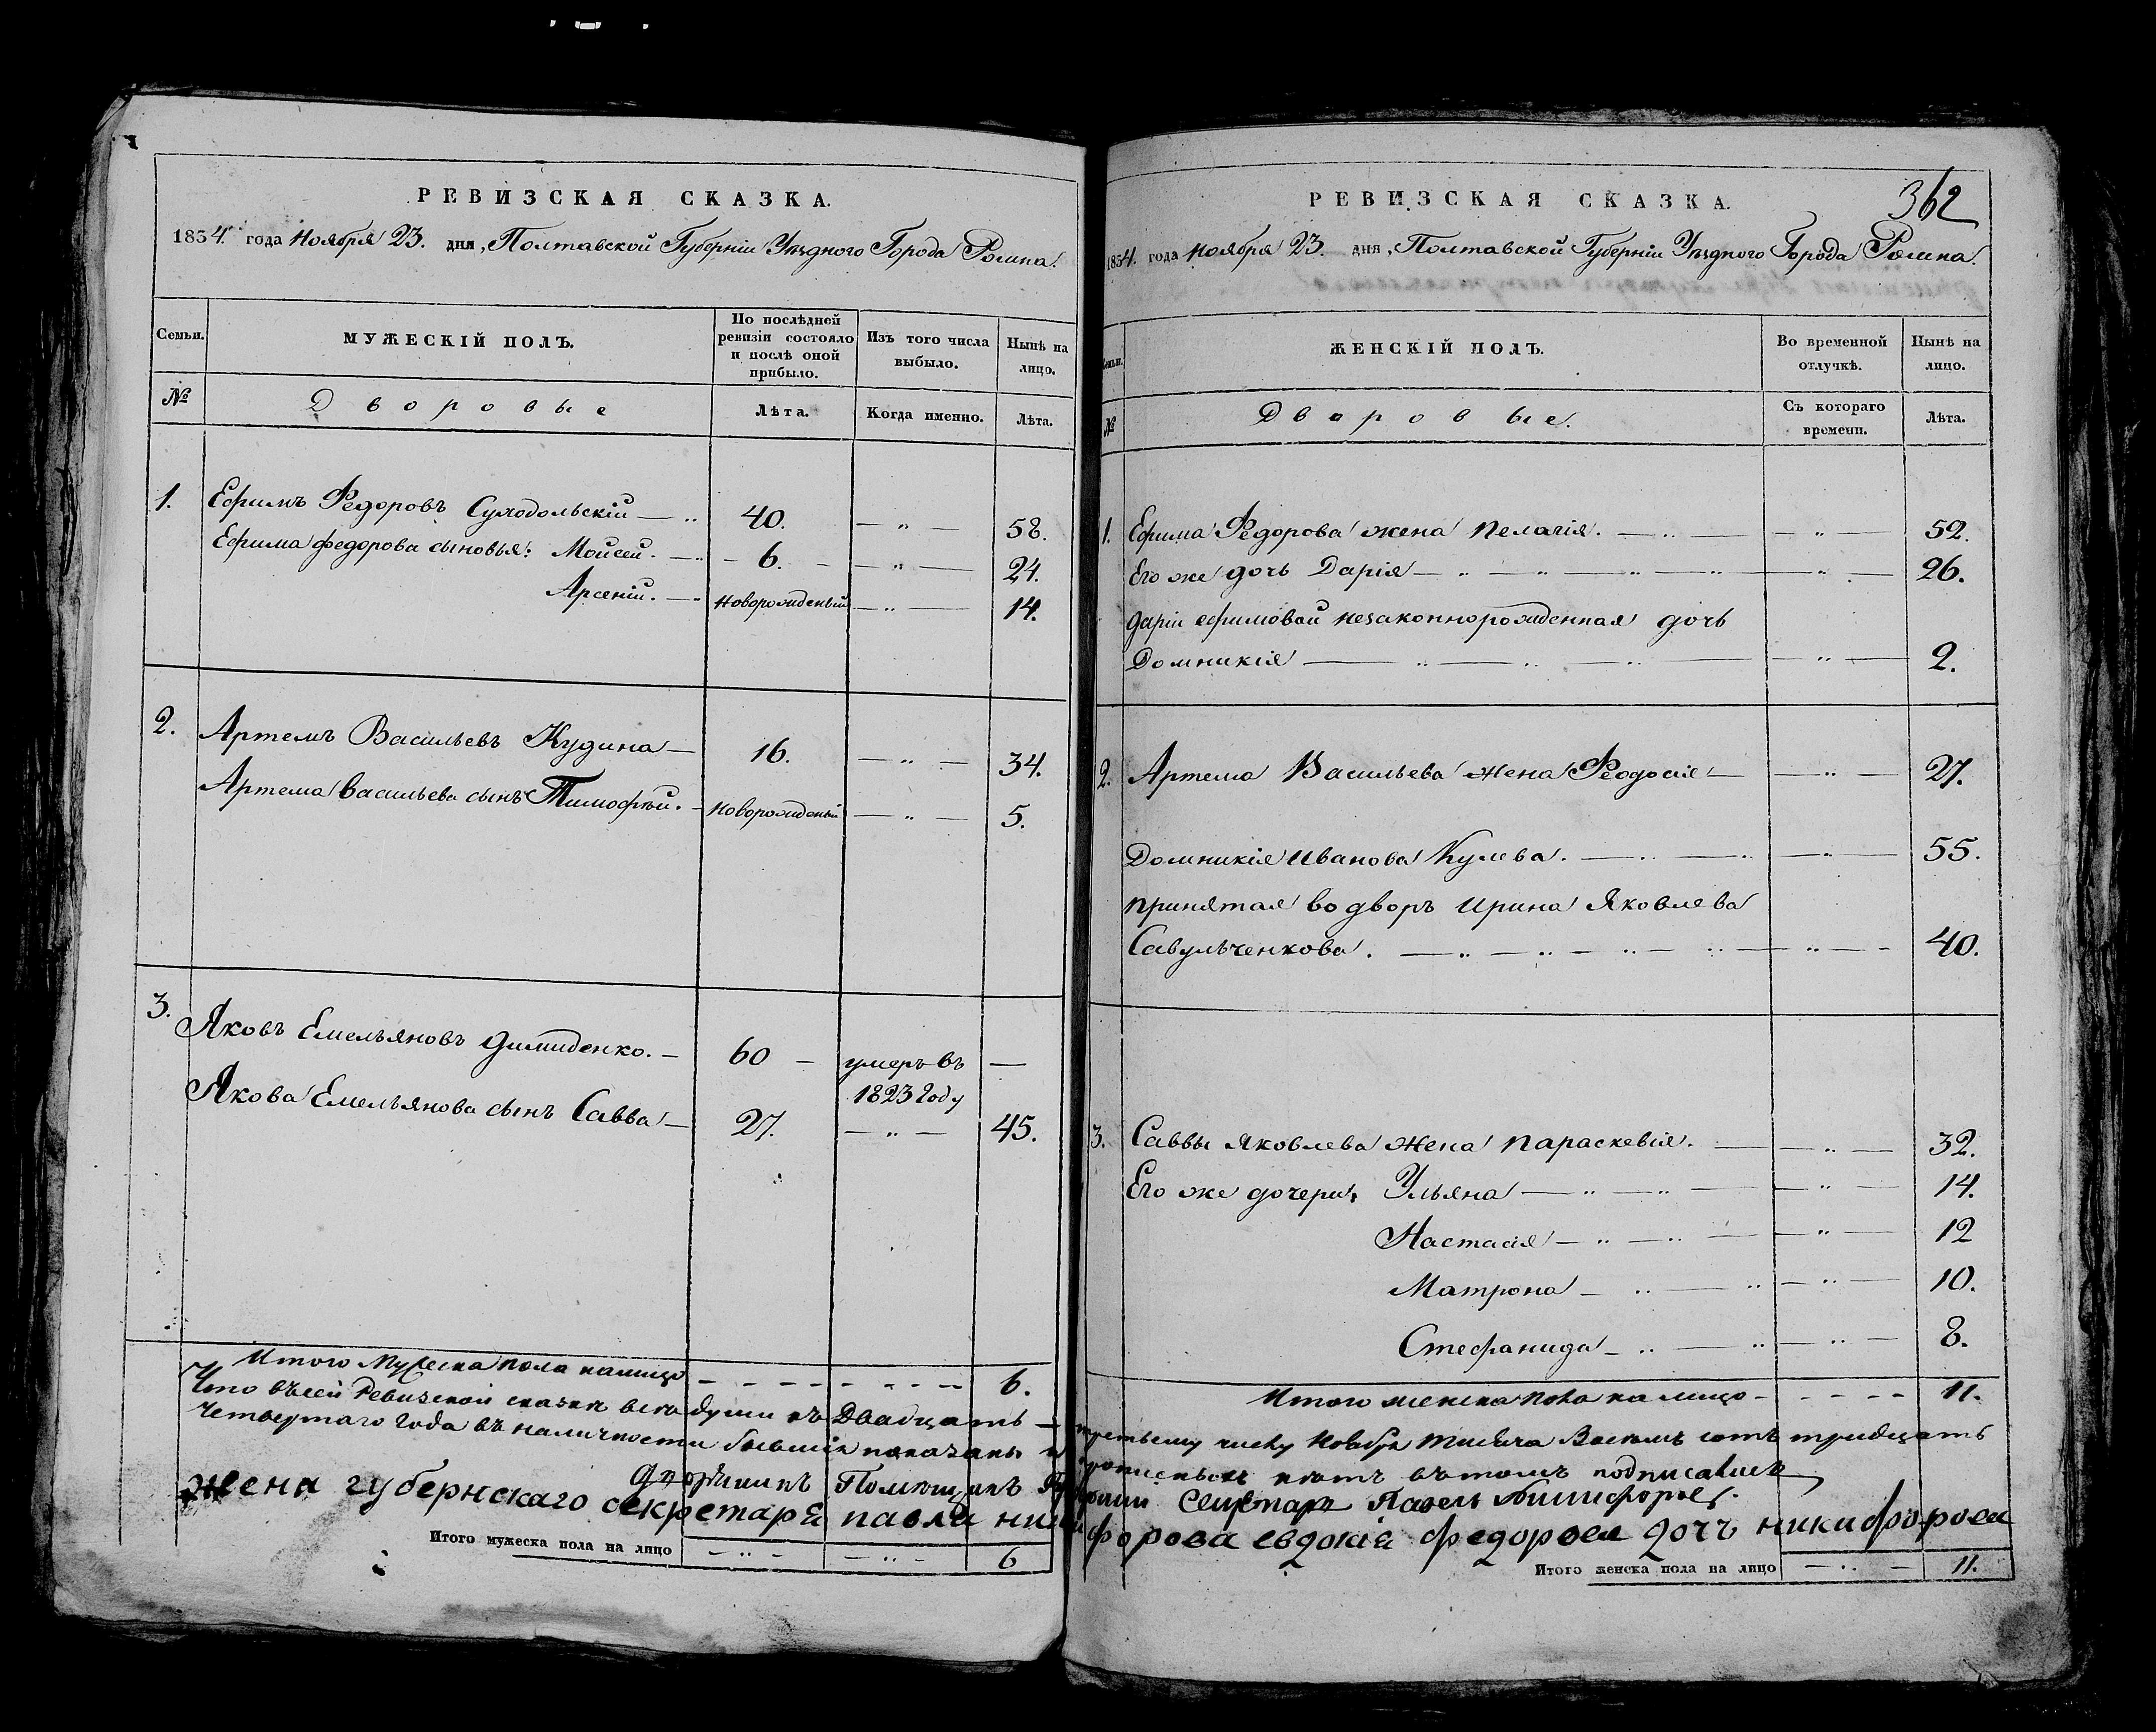 РЕВИЗСКАЯ СКАЗКА.
1834. года Ноября 23. дня, Полтавской Губерніи Уѣзднаго Города Ромна.
Семьи.
МУЖЕСКІЙ ПОЛЪ.
По послѣдней
ревизіи состояло
и послѣ оной
прибыло.
Изъ того числа
выбыло.
Нынѣ на
лицо.
№
Дворовые
Лѣта.
Когда именно.
Лѣта.
1. Ефимъ Федоровъ Суходольскій — 40. — „ — 58.
Ефима федорова сыновья: Моисей. — 6. — „ — 24.
Арсеній. — новорожденый — „ — 14.
2. Артемъ Васильевъ Кудина — 16. — „ — 34.
Артема Васильева сынъ Тимофѣй. — новорожденый — „ — 5.
3. Яковъ Емельяновъ Димиденко. — 60 — умеръ въ —
1823 году
Якова Емельянова сынъ Савва — 27. — „ — 45.
Итого Мужеска пола налицо — — — — 6.
Что въ сей Ревизской сказкѣ всѣ души къ Двадцать —
четвертаго года въ наличности бывшія показаны и
Дворянинъ Помѣщикъ
жена губернскаго секретаря павла ники
Итого мужеска пола на лицо — „ — — „ — 6
362
РЕВИЗСКАЯ СКАЗКА.
1834. года Ноября 23. дня, Полтавской Губерніи Уѣзднаго Города Ромна.
Семьи.
ЖЕНСКІЙ ПОЛЪ.
Во временной
отлучкѣ.
Нынѣ на
лицо.
№
Дворовые.
Съ котораго
времени.
Лѣта.
1. Ефима Федорова жена Пелагія. — „ — 52.
Его же дочь Дарія — „ — 26.
Даріи ефимовой незаконнорожденная дочь
Домникія — „ — 2.
2. Артема Васильева жена Феодосія — „ — 27.
Домникія Иванова Кулева. — „ — 55.
принятая во дворъ Ирина Яковлева
Савульченкова. — „ — 40.
3. Саввы Яковлева жена Параскевія. — „ — 32.
Его же дочери: Ульяна — „ — 14.
Настасія — „ — 12
Матрона — „ — 10.
Стефанида — „ — 8.
Итого женска пола на лицо — — — — 11.
третьему числу Ноября тысяча Восемь сотъ тридцать
нѣтъ въ томъ подписался
Секретарь Павелъ Никифоровъ.
форова евдокія федорова дочь никифорова
Итого женска пола на лицо — „ — 11.